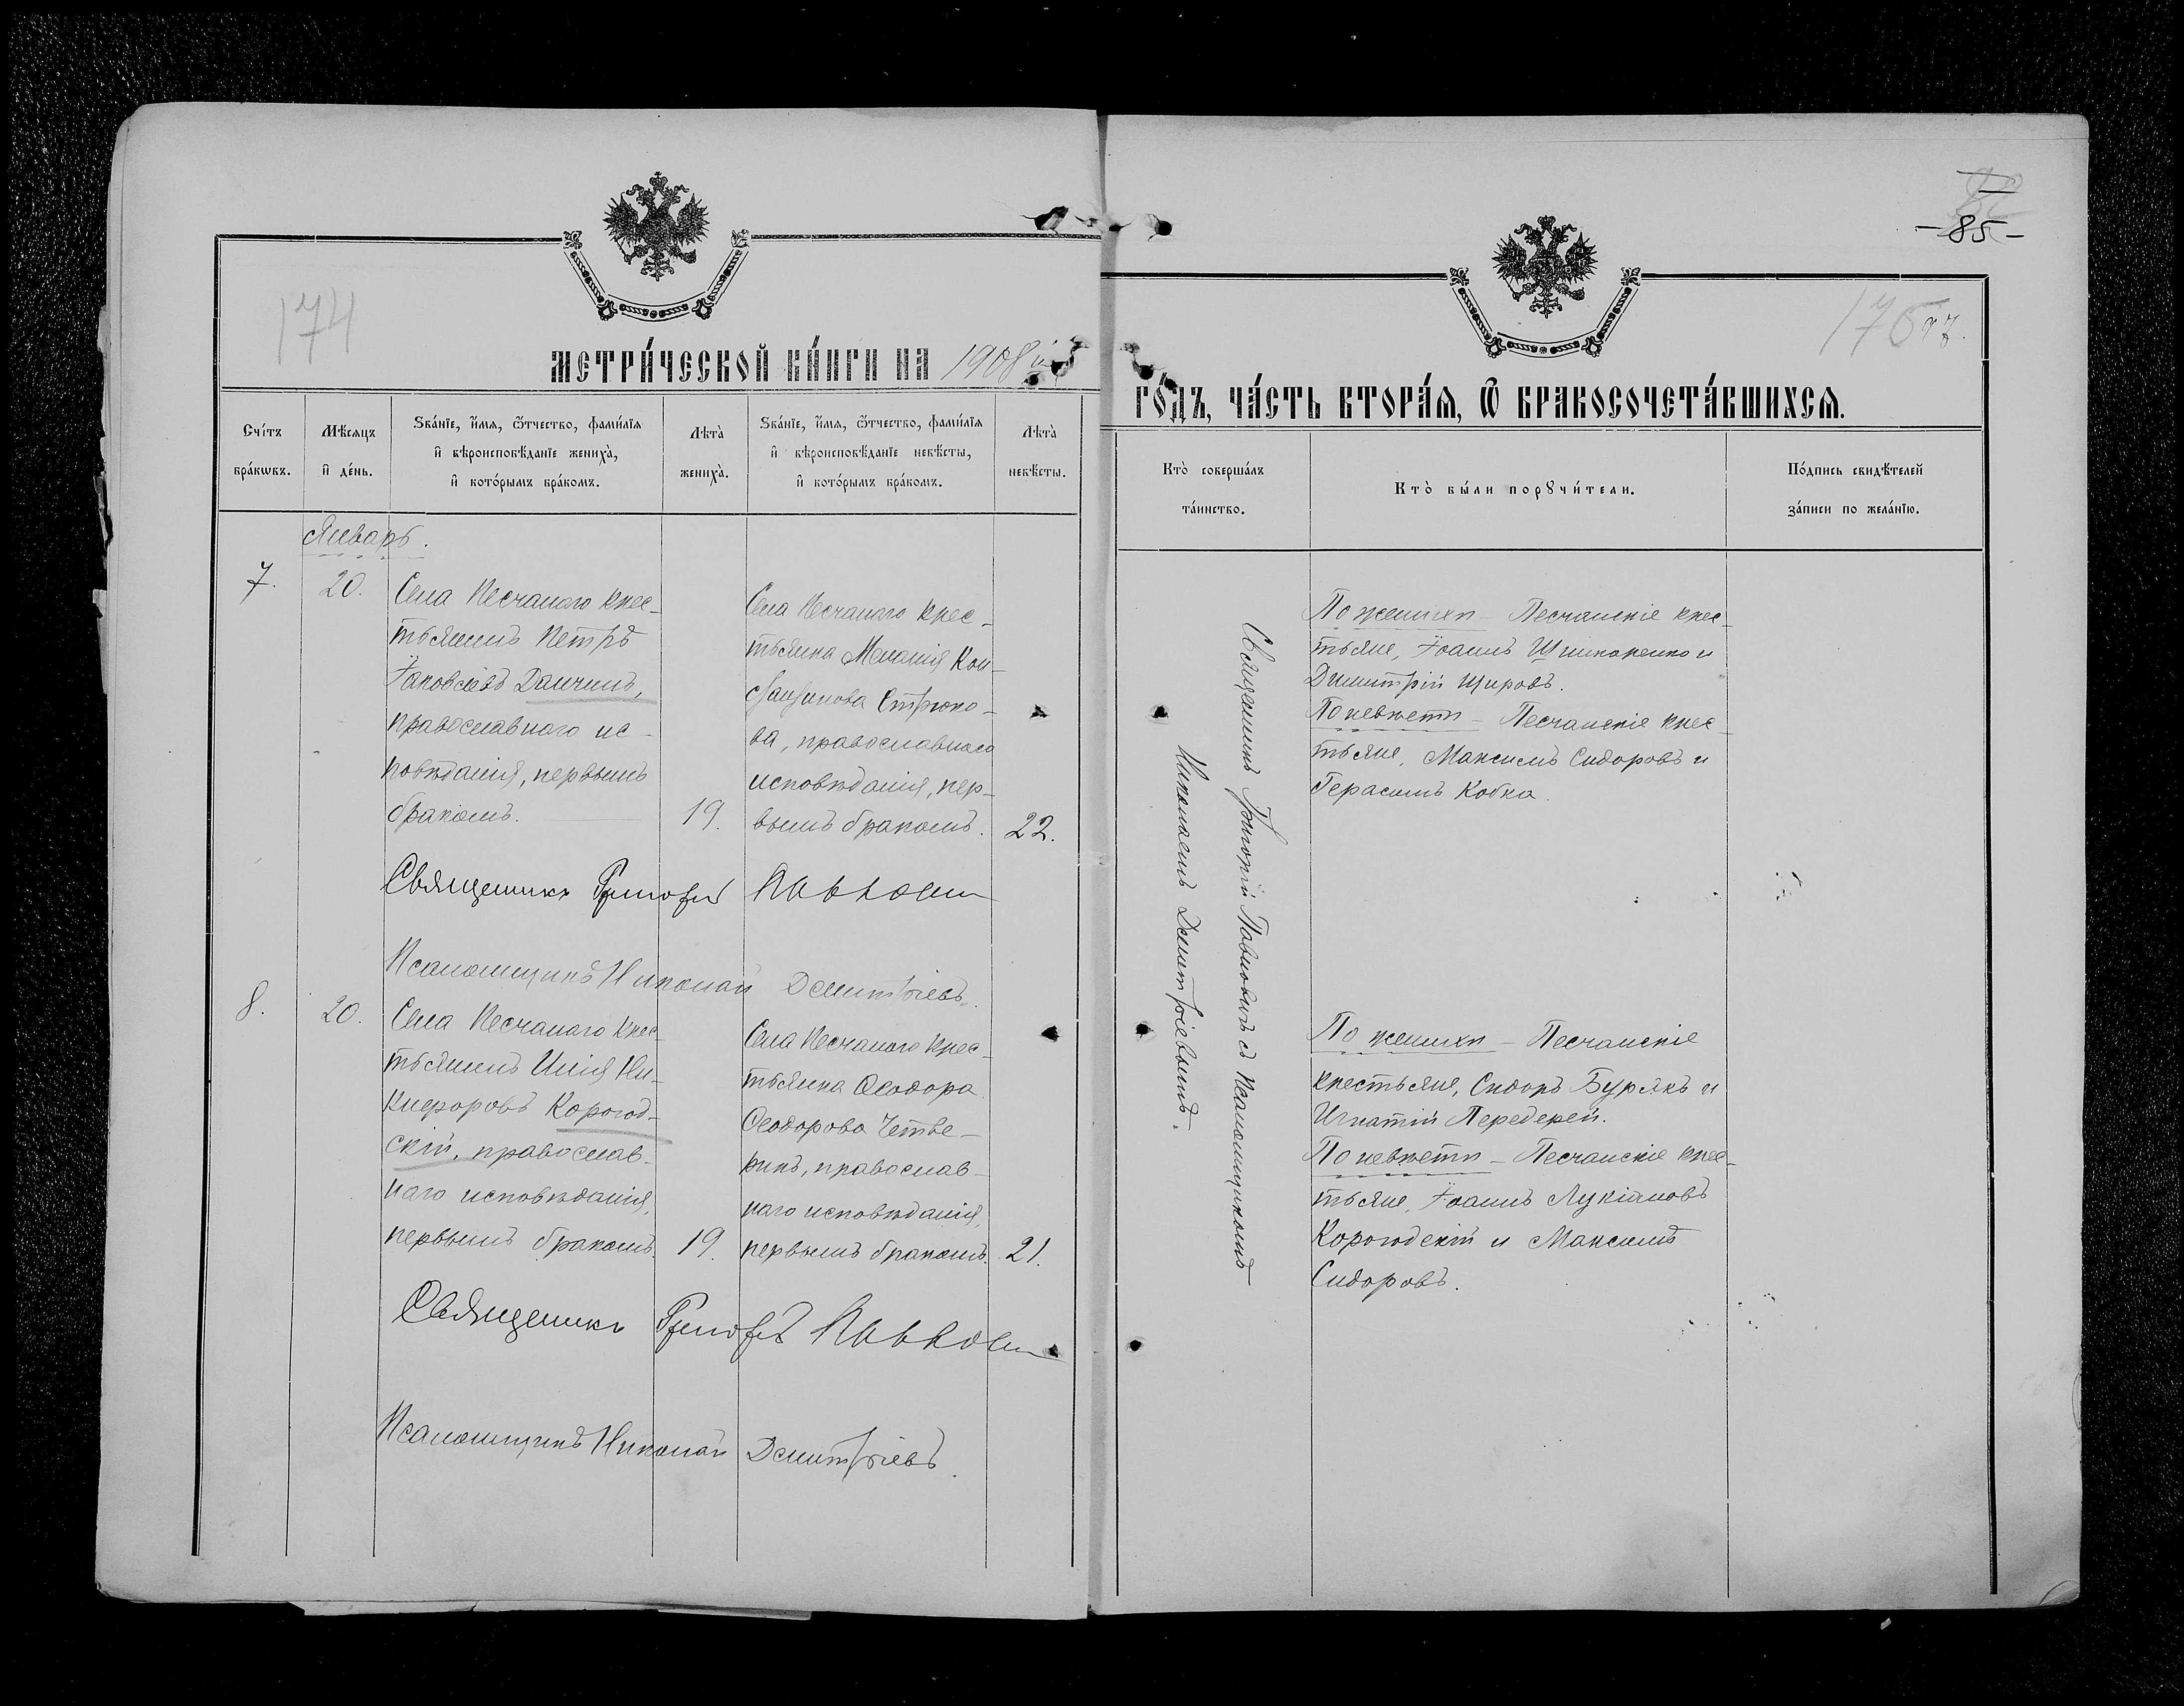 174
МЕТРИ́ЧЕСКОЙ КНИ́ГИ НА 1908й
Сче́тъ бра́кѡвъ.
Мѣ́сѧцъ и҆ де́нь.
Ѕва́нїе, и҆́мѧ, ѻ҆́тчество, фами́лїѧ
и҆ вѣроисповѣ́данїе жениха̀,
и҆ кото́рымъ бра́комъ.
Лѣта̀ жениха̀.
Ѕва́нїе, и҆́мѧ, ѻ҆́тчество, фами́лїѧ
и҆ вѣроисповѣ́данїе невѣ́сты,
и҆ кото́рымъ бра́комъ.
Лѣта̀ невѣ́сты.
Январь.
7.
20.
Села Песчанаго крес-
тьянинъ Петръ
Іаковлевъ Данчинъ,
православнаго ис-
повѣданія, первымъ
бракомъ.
19.
Села Песчанаго крес-
тьянка Меланія Кон-
стантинова Стрюко-
ва, православнаго
исповѣданія, пер-
вымъ бракомъ.
22.
Священникъ Григорій Павловичъ
Псаломщикъ Николай Дмитріевъ.
8.
20.
Села Песчанаго крес-
тьянинъ Илія Ни-
кифоровъ Корогод-
скій, православ-
наго исповѣданія,
первымъ бракомъ
19.
Села Песчанаго крес-
тьянка Ѳеодора
Ѳеодорова Четве-
рикъ, православ-
наго исповѣданія,
первымъ бракомъ.
21.
Священникъ Григорій Павловичъ
Псаломщикъ Николай Дмитріевъ.
-85-
175
ГО́ДЪ, ЧА́СТЬ ВТОРА́Ѧ, Ѡ҆ БРАКОСОЧЕТА́ВШИХСѦ.
Кто̀ соверша́лъ
та́инство.
Кто̀ бы́ли порꙋчи́тели.
По́дпись свидѣ́телей
за́писи по жела́нїю.
Священникъ Григорій Павловичъ съ псаломщикомъ
Николаемъ Дмитріевымъ.
По женихѣ – Песчанскіе крес-
тьяне, Іоаннъ Шинкаренко и
Димитрій Щировъ.
По невѣстѣ – Песчанскіе крес-
тьяне, Максимъ Сидоровъ и
Герасимъ Кобка.
По женихѣ – Песчанскіе
крестьяне, Сидоръ Бурякъ и
Игнатій Передерей.
По невѣстѣ – Песчанскіе крес-
тьяне, Іоаннъ Лукіановъ
Корогодскій и Максимъ
Сидоровъ.